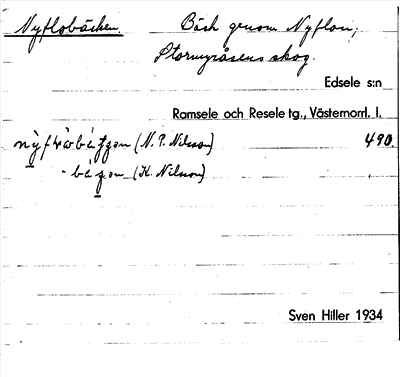 Nyflobäcken. Bäck genom Nyflon,
Stormyråsens skog.
Edsele s:n
Ramsele och Resele tg., Västernorrl. l.
(N. P. Nilsson) 490.
(K. Nilsson)
Sven Hiller 1934